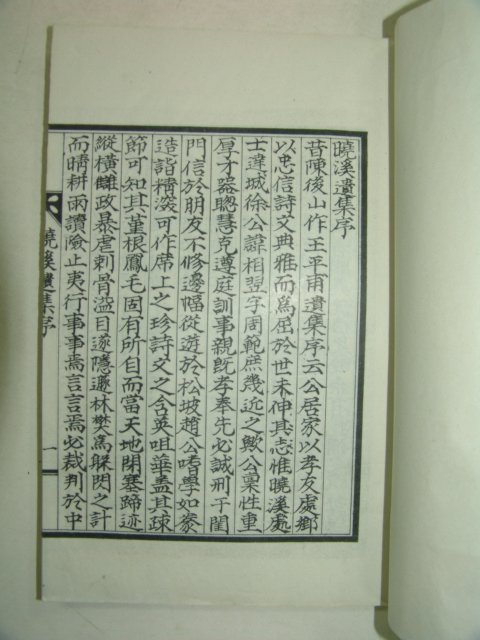 曉溪遺集序
昔陳後山作王平甫遺集序云公居家以孝友處鄉
以忠信詩文典雅而爲屈於世未伸其志惟曉溪處
士達城徐公諱相翌字周範庶幾近之歟公稟性重
厚才器聰慧克遵庭訓事親旣孝奉先必誠刑于閨
門信於朋友不修邊幅從遊於松坡趙公嗜學如豢
造詣精深可作席上之珍詩文之含英咀華盖其疎
節可知其菫根鳳毛固有所自而當天地閉塞蹄迹
縱橫讎政暴虐刺骨溢目遂隱遯林樊爲躱閃之計
而晴耕雨讀險止夷行事事焉言言焉必裁判於中
曉溪遺集序
一